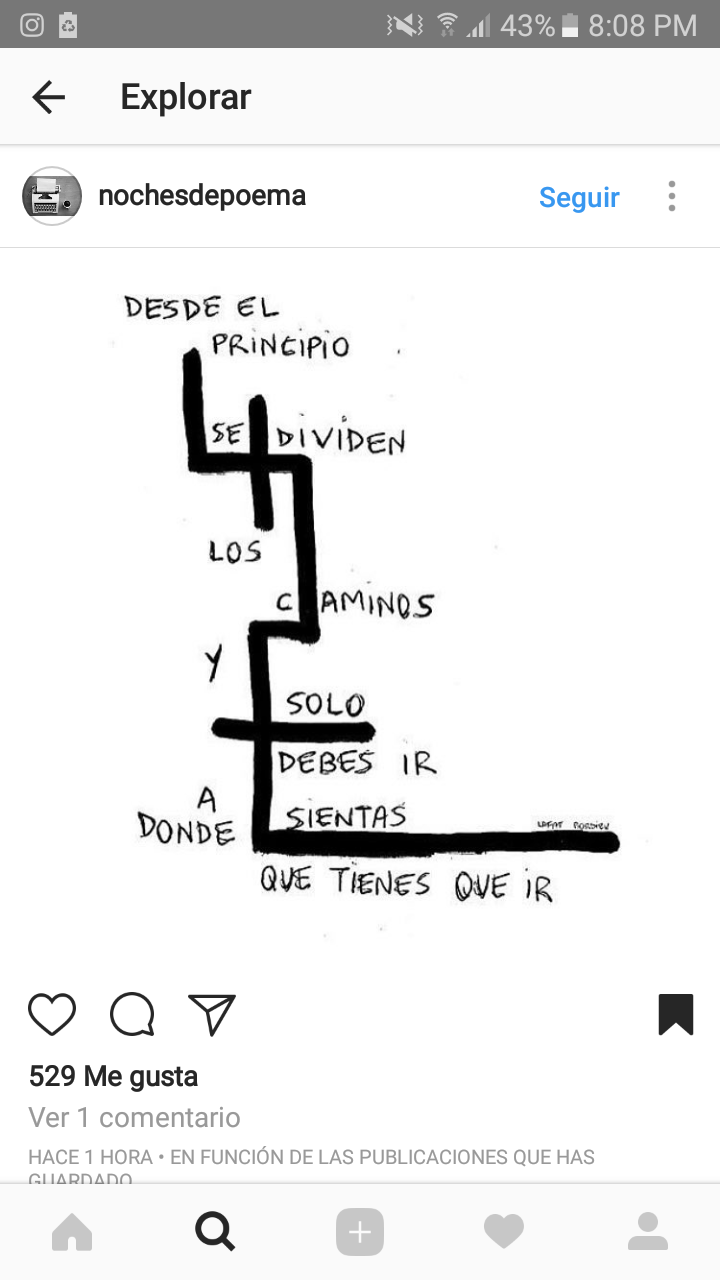 43% 8:08 PM
Explorar
nochesdepoema
Seguir
DESDE EL
PRINCIPIO
SE DIVIDEN
LOS
CAMINOS
Y
SOLO
DEBES IR
A
DONDE SIENTAS
QUE TIENES QUE IR
529 Me gusta
Ver 1 comentario
HACE 1 HORA • EN FUNCIÓN DE LAS PUBLICACIONES QUE HAS
GUARDADO